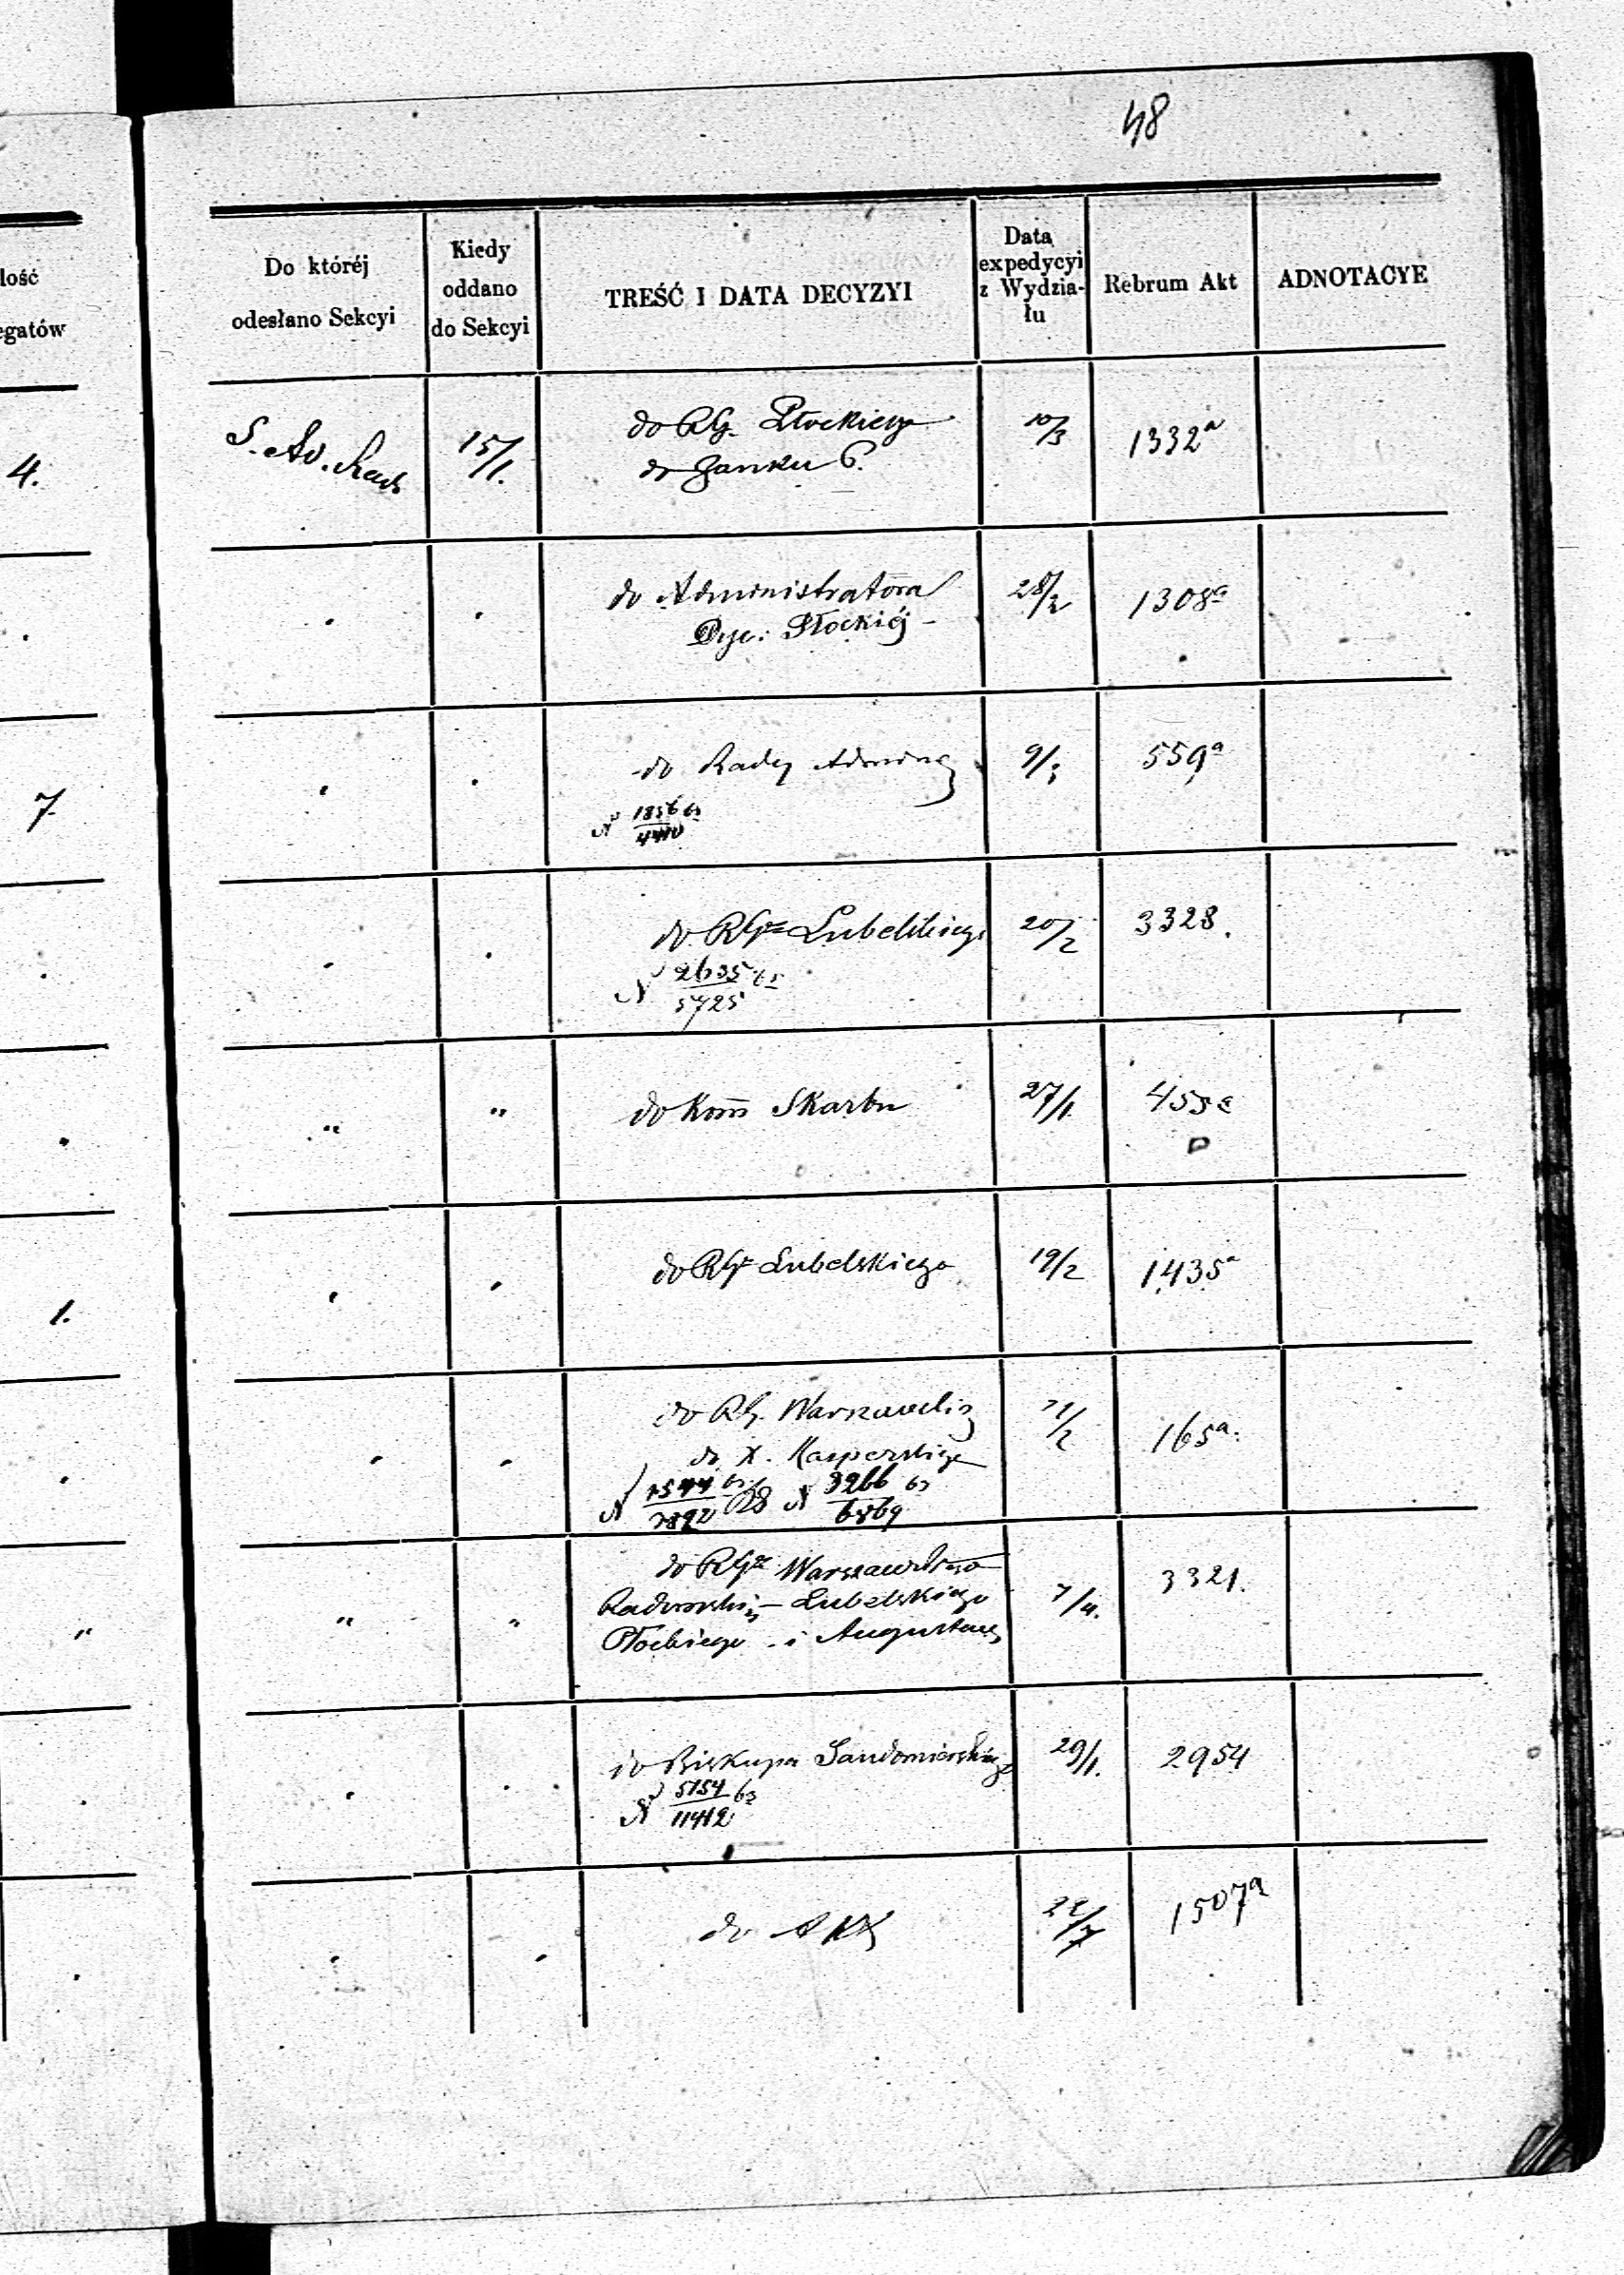 48
lość
egatów
Do któréj
odesłano Sekcyi
Kiedy
oddano
do Sekcyi
TREŚĆ I DATA DECYZYI
Data
expedycyi
z Wydzia-
łu
Rebrum Akt
ADNOTACYE
4.
S. Ad. Rach
15/1.
do RG. Płockiego
do Banku P.
10/3
1332a
do Administratora
Dyc: Płockiéj -
28/2
1308a
7.
do Rady Adminej
9/3
559a
N 1856 63
4410
do RGo Lubelskiego
20/2
3328.
N 2635 63
5725
"
"
do Kom Skarbu
27/1.
455
1.
do RGo Lubelskiego
19/2
1435a
do RG. Warszawskiego
do X. Kasperskiego
/2
165a.
N 63 N 3266 63
6869
"
"
"
do RGo Warszawskiego
Radomskiego - Lubelskiego
Płockiego - i Augustows
7/4.
3321.
do Biskupa Sandomierskiego
29/1.
2954
N 5154 63
11412
do
22/7
1507a